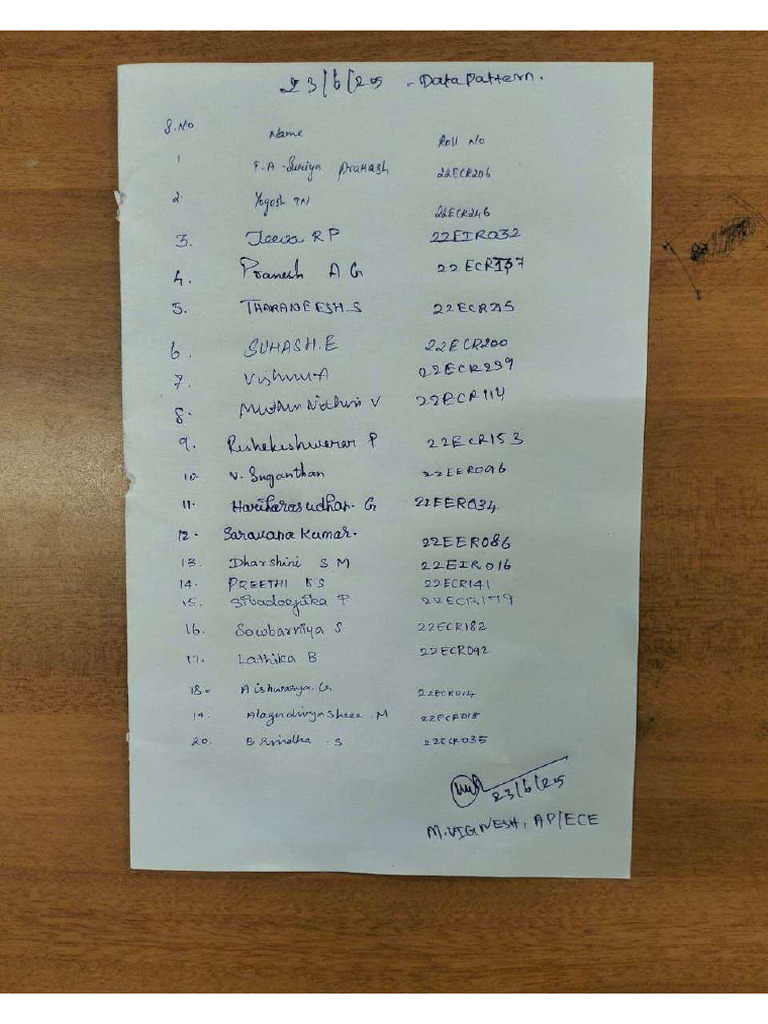 23/6/25 - Data Pattern.
S.No Name Roll No
1 P.A. Suriya Prakash 22ECR206
2. Yogesh TN 22ECR246
3. Jeeva RP 22EIR032
4. Pranesh A G 22ECR137
5. THARANEESH.S 22ECR215
6. SUHASH.E 22ECR200
7. Vishnu-A 22ECR239
8. Muthu Nidhin V 22ECR114
9. Rishekeshwaran P 22ECR153
10. V. Suganthan 22EER096
11. Hariharasudhan. G 22EER034
12. Saravana Kumar. 22EER086
13. Dharshini S M 22EIR016
14. PREETHI K S 22ECR141
15. P 22ECR179
16. Sowbarniya S 22ECR182
17. Lathika B 22ECR092
18. Aishwarya. G 22ECR014
19. M 22ECR018
20. Brindha . S 22ECR035
23/6/25
M.VIGNESH, AP/ECE